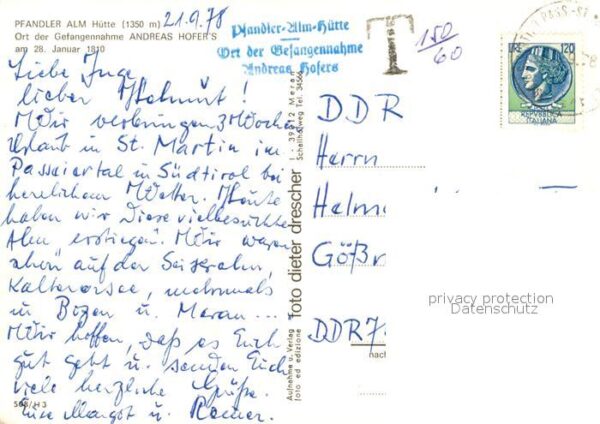 PFANDLER ALM Hütte (1350 m)
Ort der Gefangennahme ANDREAS HOFER'S
am 28. Januar 1810
21.9.78
Pfandler-Alm-Hütte
Ort der Gefangennahme
Andreas Hofers
T
150
60
LIRE 120
ITALIANA
Liebe Inge,
lieber Helmut!
Wir verbringen 3 Wochen
Urlaub in St. Martin im
Passeiertal in Südtirol bei
herrlichem Wetter. Heute
haben wir diese vielbesuchte
Alm "erstiegen". Wir waren
schon auf der Seiseralm,
Kalterersee, mehrmals
in Bozen u. Meran...
Wir hoffen, daß es Euch
gut geht u. senden Euch
viele herzliche Grüße.
Eure Margot u. Reiner.
508/H3
Aufnahme u. Verlag
foto ed edizione
foto dieter drescher
I - 39012 Meran
DDR
Herrn
Helm
Gößn
DDR 7
nach
privacy protection
Datenschutz